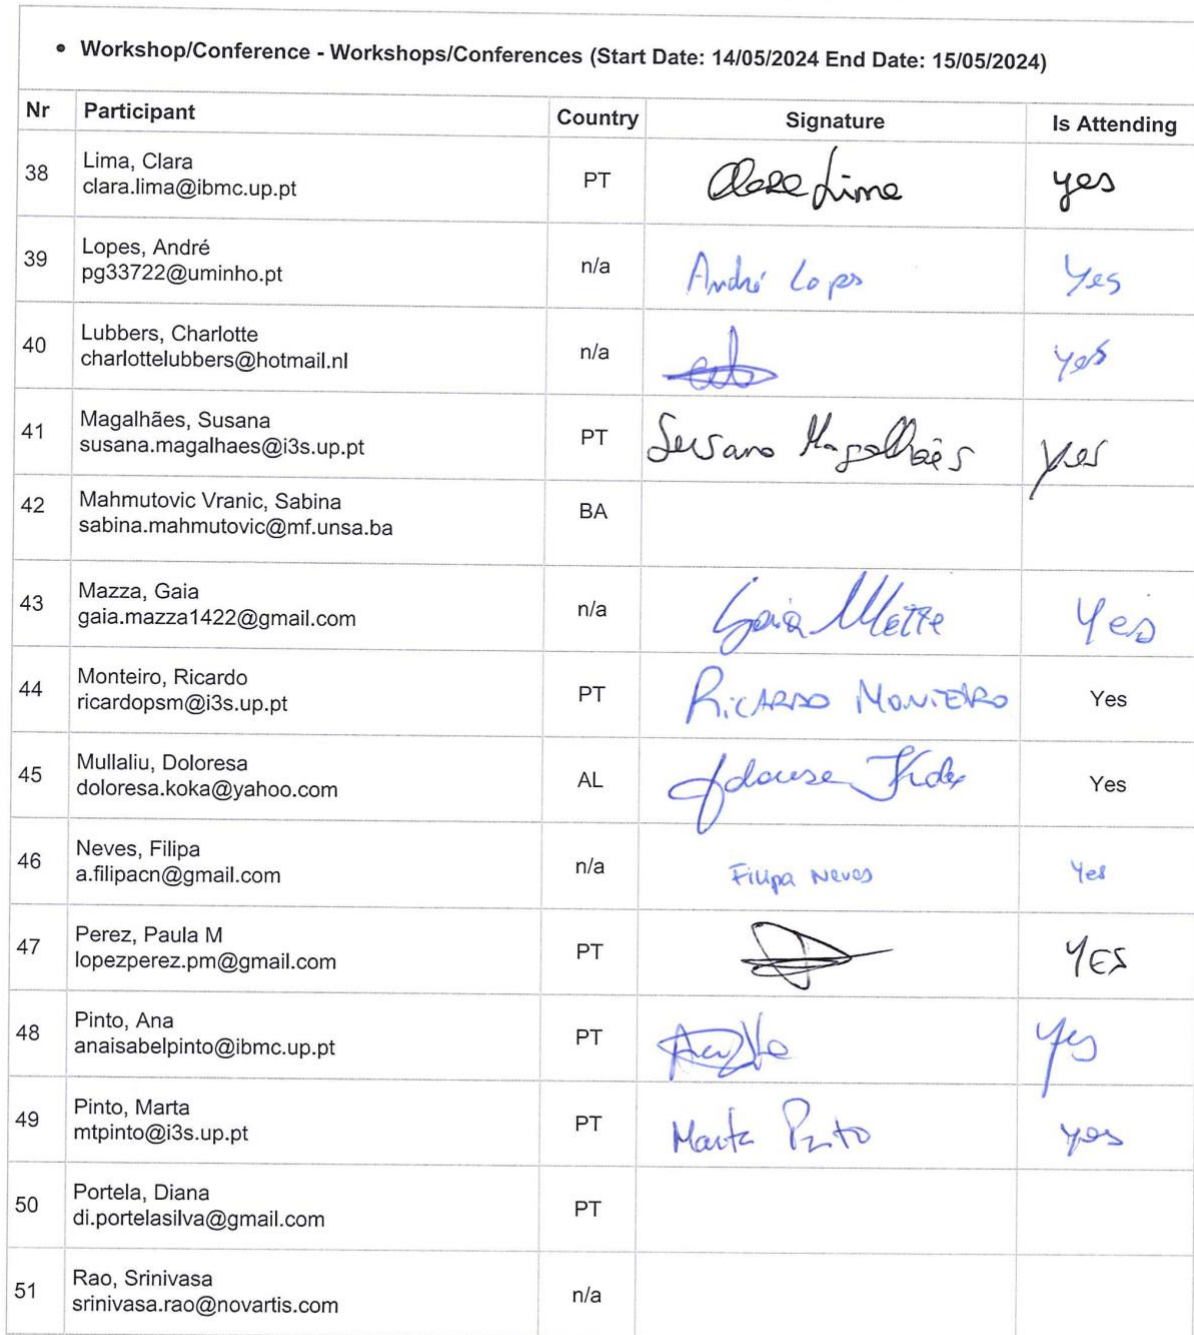 • Workshop/Conference - Workshops/Conferences (Start Date: 14/05/2024 End Date: 15/05/2024)
Nr Participant Country Signature Is Attending
38 Lima, Clara
clara.lima@ibmc.up.pt PT Clara Lima yes
39 Lopes, André
pg33722@uminho.pt n/a André Lopes Yes
40 Lubbers, Charlotte
charlottelubbers@hotmail.nl n/a yes
41 Magalhães, Susana
susana.magalhaes@i3s.up.pt PT Susana Magalhães yes
42 Mahmutovic Vranic, Sabina
sabina.mahmutovic@mf.unsa.ba BA
43 Mazza, Gaia
gaia.mazza1422@gmail.com n/a Gaia Yes
44 Monteiro, Ricardo
ricardopsm@i3s.up.pt PT RICARDO MONTEIRO Yes
45 Mullaliu, Doloresa
doloresa.koka@yahoo.com AL Yes
46 Neves, Filipa
a.filipacn@gmail.com n/a Filipa Neves Yes
47 Perez, Paula M
lopezperez.pm@gmail.com PT YES
48 Pinto, Ana
anaisabelpinto@ibmc.up.pt PT Yes
49 Pinto, Marta
mtpinto@i3s.up.pt PT Marta Pinto yes
50 Portela, Diana
di.portelasilva@gmail.com PT
51 Rao, Srinivasa
srinivasa.rao@novartis.com n/a